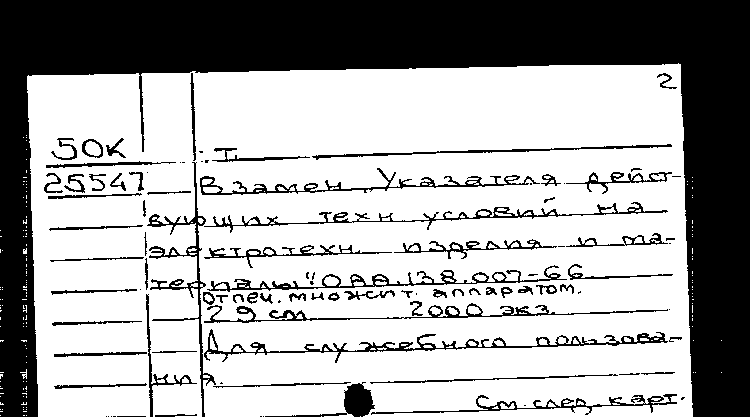 2
50К Т.
25547 Взамен „Указателя дейст-
вующих техн условий на
электротехн. изделия и ма-
териалы" ОАА.138.007-66
отпеч. множит. аппаратом.
29 см 2000 экз.
Для служебного пользова-
ния.
См. след. карт.